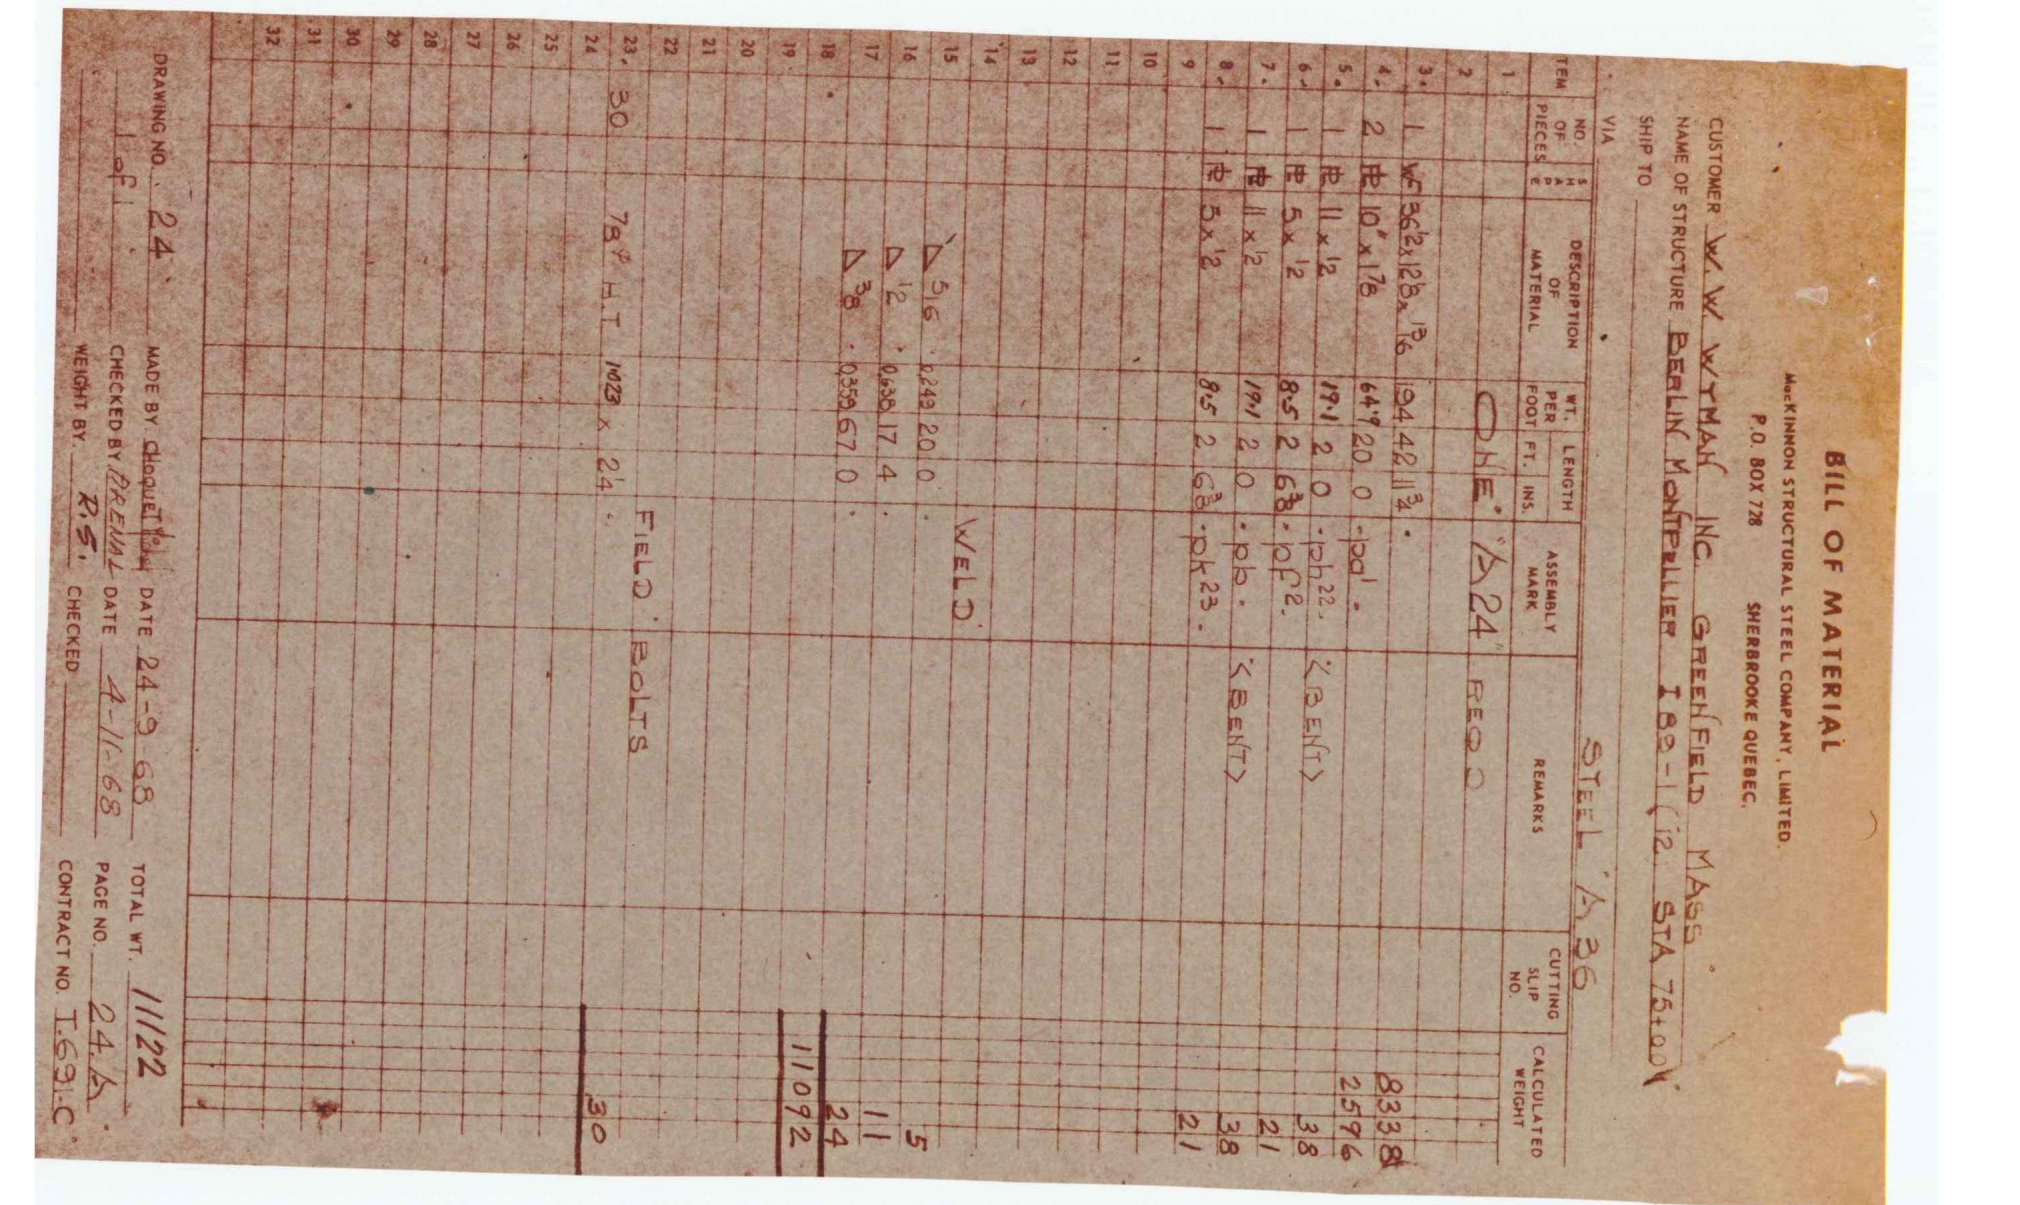 BILL OF MATERIAL
MacKINNON STRUCTURAL STEEL COMPANY, LIMITED.
P.O. BOX 728 SHERBROOKE QUEBEC.
CUSTOMER W. W. WYMAN INC. GREENFIELD MASS.
NAME OF STRUCTURE BERLIN MONTPELIER I 89-1 (12 STA 75+00)
SHIP TO
VIA STEEL "A 36
ITEM NO. OF PIECES SHAPE DESCRIPTION OF MATERIAL WT. PER FOOT LENGTH FT. INS. ASSEMBLY MARK REMARKS CUTTING SLIP NO. CALCULATED WEIGHT
1
2 ONE "A24" REQD
3. 1 WF 36½x12⅛x 13/16 194 42 11¾ 8338
4. 2 PL 10"x1⅞ 64.9 20 0 pd' 2596
5. 1 PL 11x½ 19.1 2 0 ph22 <BENT> 38
6. 1 PL 5x½ 8.5 2 6⅜ pf2 21
7. 1 PL 11x½ 19.1 2 0 pb <BENT> 38
8. 1 PL 5x½ 8.5 2 6⅜ pk23 21
9
10
11
12
13
14 WELD
15 5/16 0.249 20 0 5
16 ½ 0.638 17 4 11
17 ⅜ 0.359 67 0 24
18 11092
19
20
21
22 FIELD BOLTS
23. 30 ⅞φ H.T 1.023 x 2¼ 30
24
25
26
27
28
29
30
31
32
DRAWING NO. 24 MADE BY Choquette DATE 24-9-68 TOTAL WT. 11122
1 of 1 CHECKED BY ARENAL DATE 4-11-68 PAGE NO. 24.A
WEIGHT BY. R.S. CHECKED CONTRACT NO. I.691-C